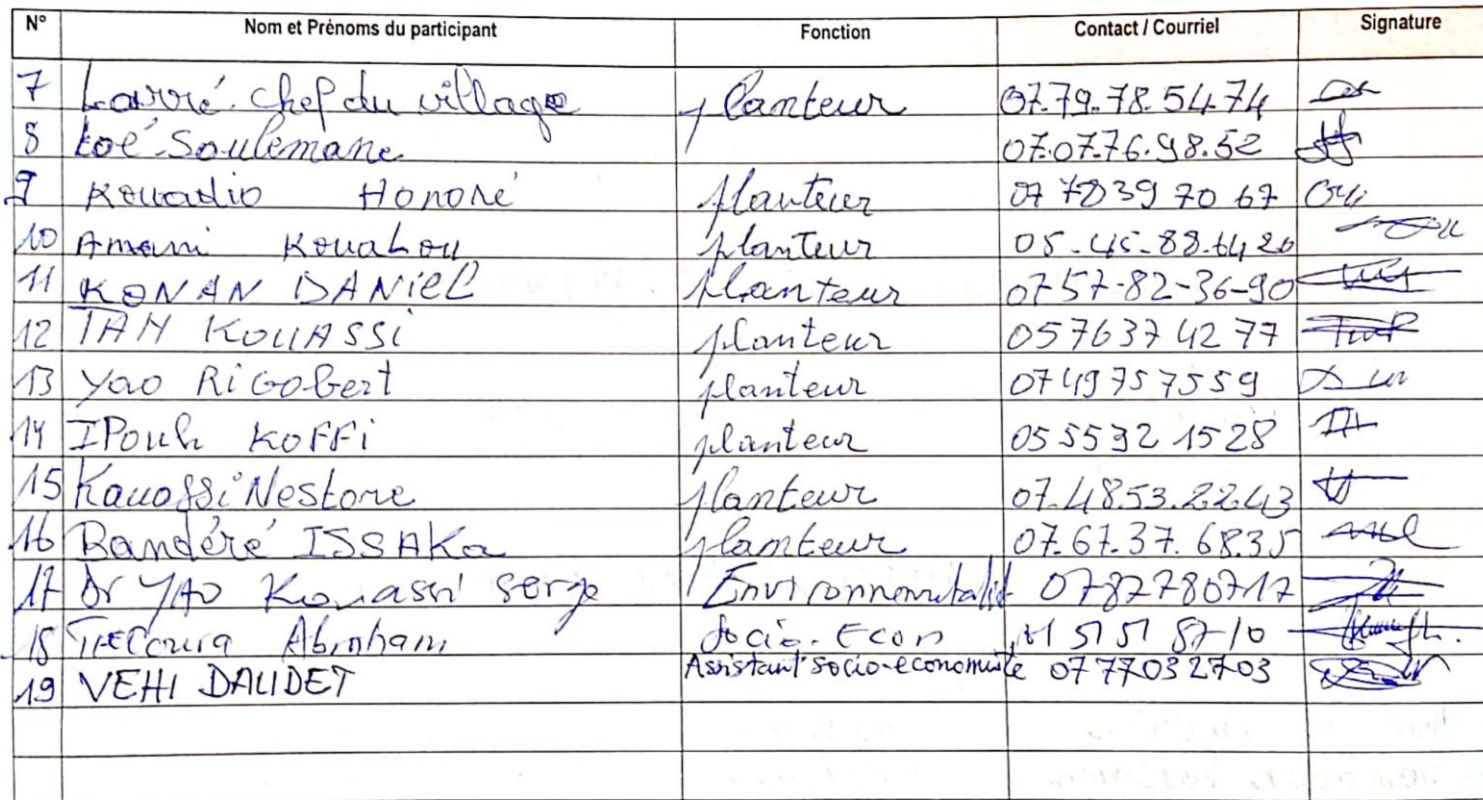 N° Nom et Prénoms du participant Fonction Contact / Courriel Signature
7 Larré chef du village planteur 07.79.78.54.74
8 Loé Soulemane 07.07.76.98.52
9 Kouadio Honoré planteur 07 78 39 70 67
10 Amani Kouahou planteur 05-45-88.64 20
11 KONAN DANiEL planteur 0757-82-36-90
12 TAH KOUASSi planteur 05 76 37 42 77
13 Yao RiGobert planteur 07 49 75 75 59
14 IPouh KOFFi planteur 05 55 32 15 28
15 Kauossi Nestore planteur 07.48.53.22.43
16 Bandéré ISSAKa planteur 07.67.37.68.35
17 Dr YAO Kouassi serge Environnementalist 0787780717
18 Abraham Socio-Econ 01 51 51 87 10
19 VEHI DAUDET Assistant socio-economiste 07 77 03 27 03